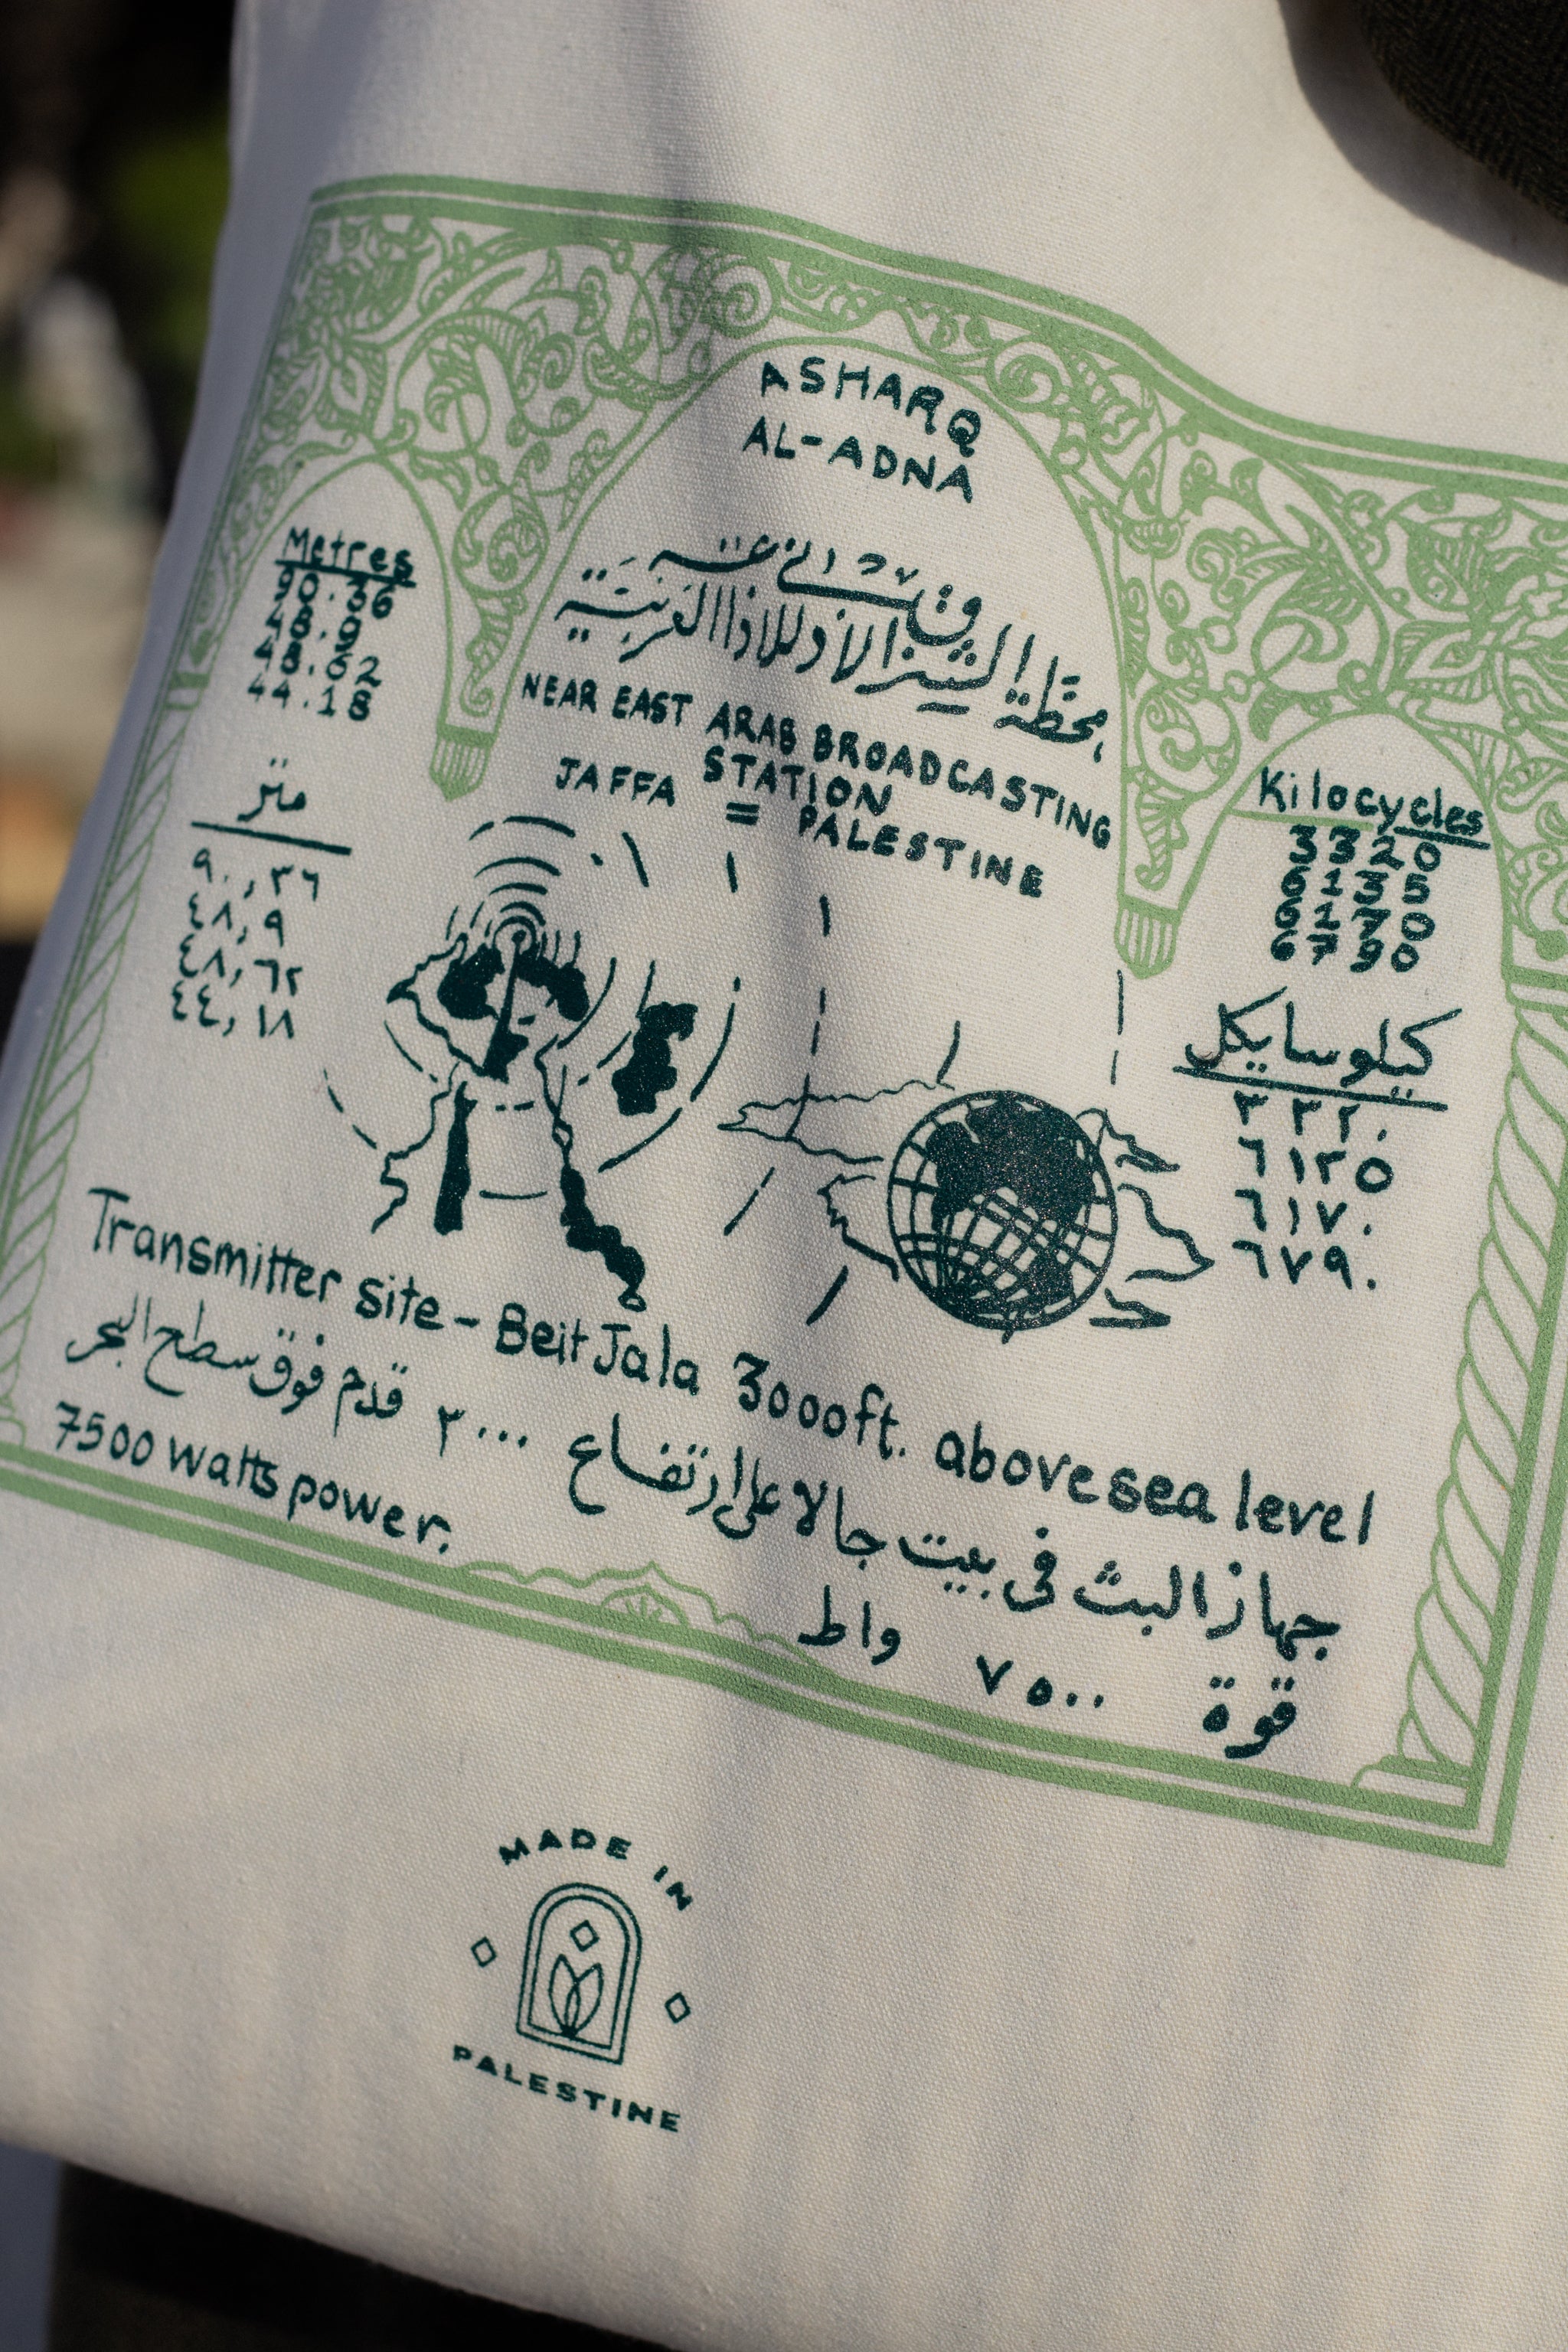 ASHARQ
AL-ADNA
محطة الشرق الأدنى للإذاعة العربية
NEAR EAST ARAB BROADCASTING
STATION
JAFFA = PALESTINE
Metres
90.36
48.9
48.62
44.18
متر
٩٠,٣٦
٤٨,٩
٤٨,٦٢
٤٤,١٨
Kilocycles
3320
6135
6170
6790
كيلوسايكل
٣٣٢٠
٦١٣٥
٦١٧٠
٦٧٩٠
Transmitter site - Beit Jala 3000ft. above sea level
جهاز البث في بيت جالا على ارتفاع ٣٠٠٠ قدم فوق سطح البحر
7500 watts power.
قوة ٧٥٠٠ واط
MADE IN
PALESTINE